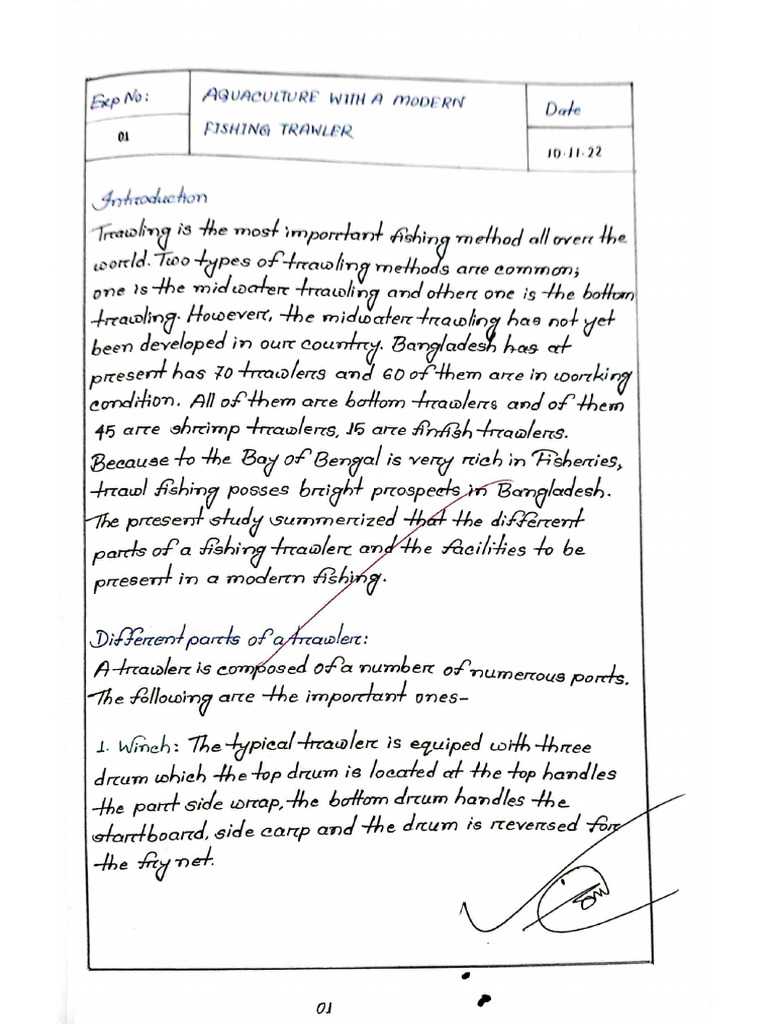 Exp No:
01
AQUACULTURE WITH A MODERN
FISHING TRAWLER
Date
10.11.22
Introduction
Trawling is the most important fishing method all over the
world. Two types of trawling methods are common;
one is the midwater trawling and other one is the bottom
trawling. However, the midwater trawling has not yet
been developed in our country. Bangladesh has at
present has 70 trawlers and 60 of them are in working
condition. All of them are bottom trawlers and of them
45 are shrimp trawlers, 15 are finfish trawlers.
Because to the Bay of Bengal is very rich in Fisheries,
trawl fishing posses bright prospects in Bangladesh.
The present study summerized that the different
parts of a fishing trawler and the facilities to be
present in a modern fishing.
Different parts of a trawler:
A trawler is composed of a number of numerous parts.
The following are the important ones-
1. Winch: The typical trawler is equiped with three
drum which the top drum is located at the top handles
the part side wrap, the bottom drum handles the
startboard, side carp and the drum is reversed for
the fry net.
01